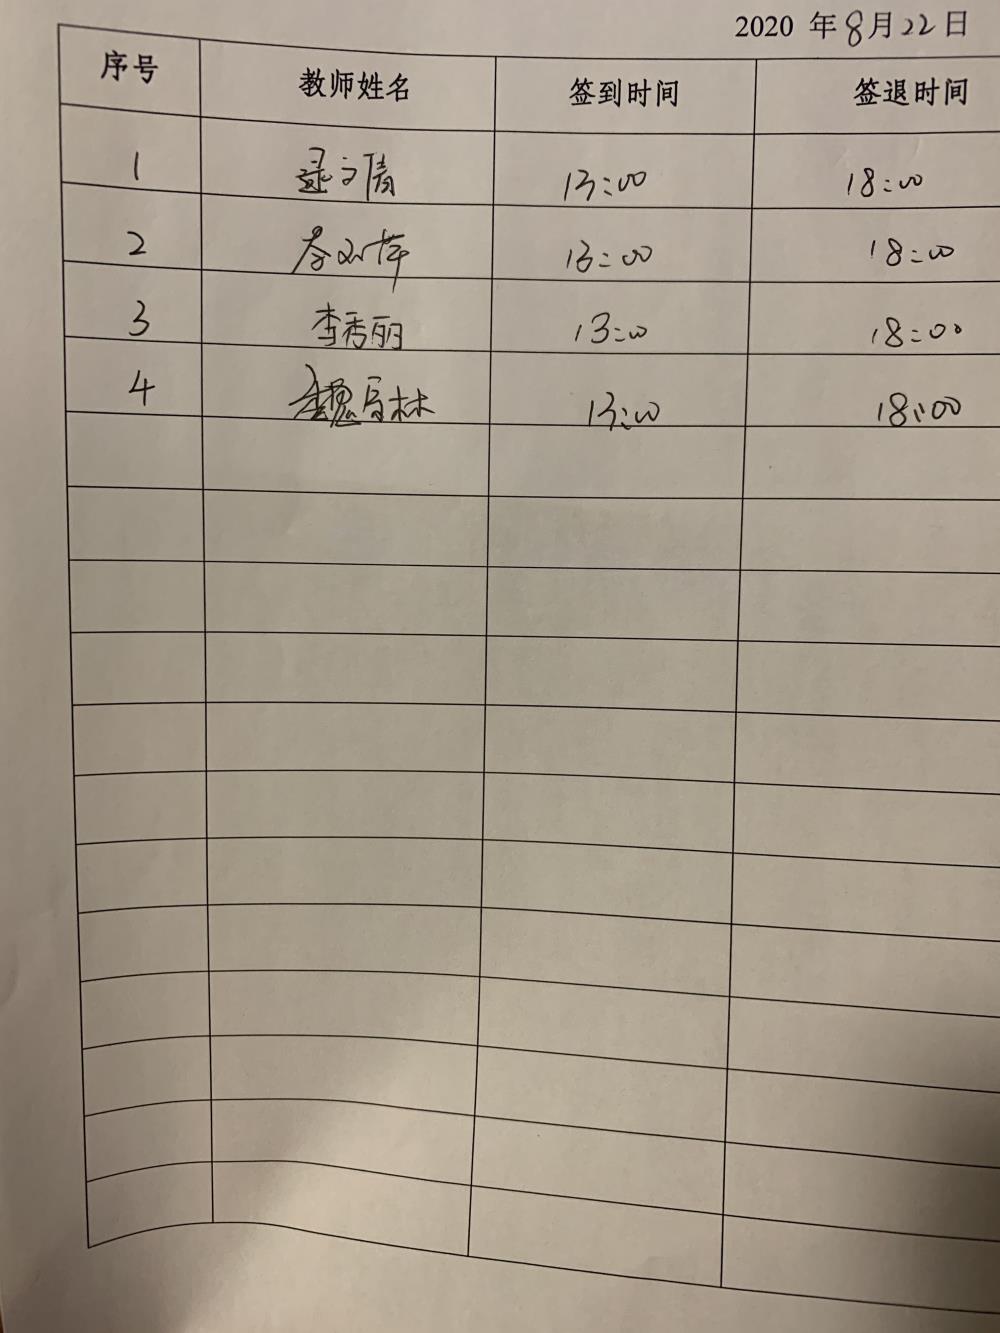 2020 年8月22日
序号 教师姓名 签到时间 签退时间
1 13:00 18:00
2 13:00 18:00
3 李秀丽 13:00 18:00
4 13:00 18:00